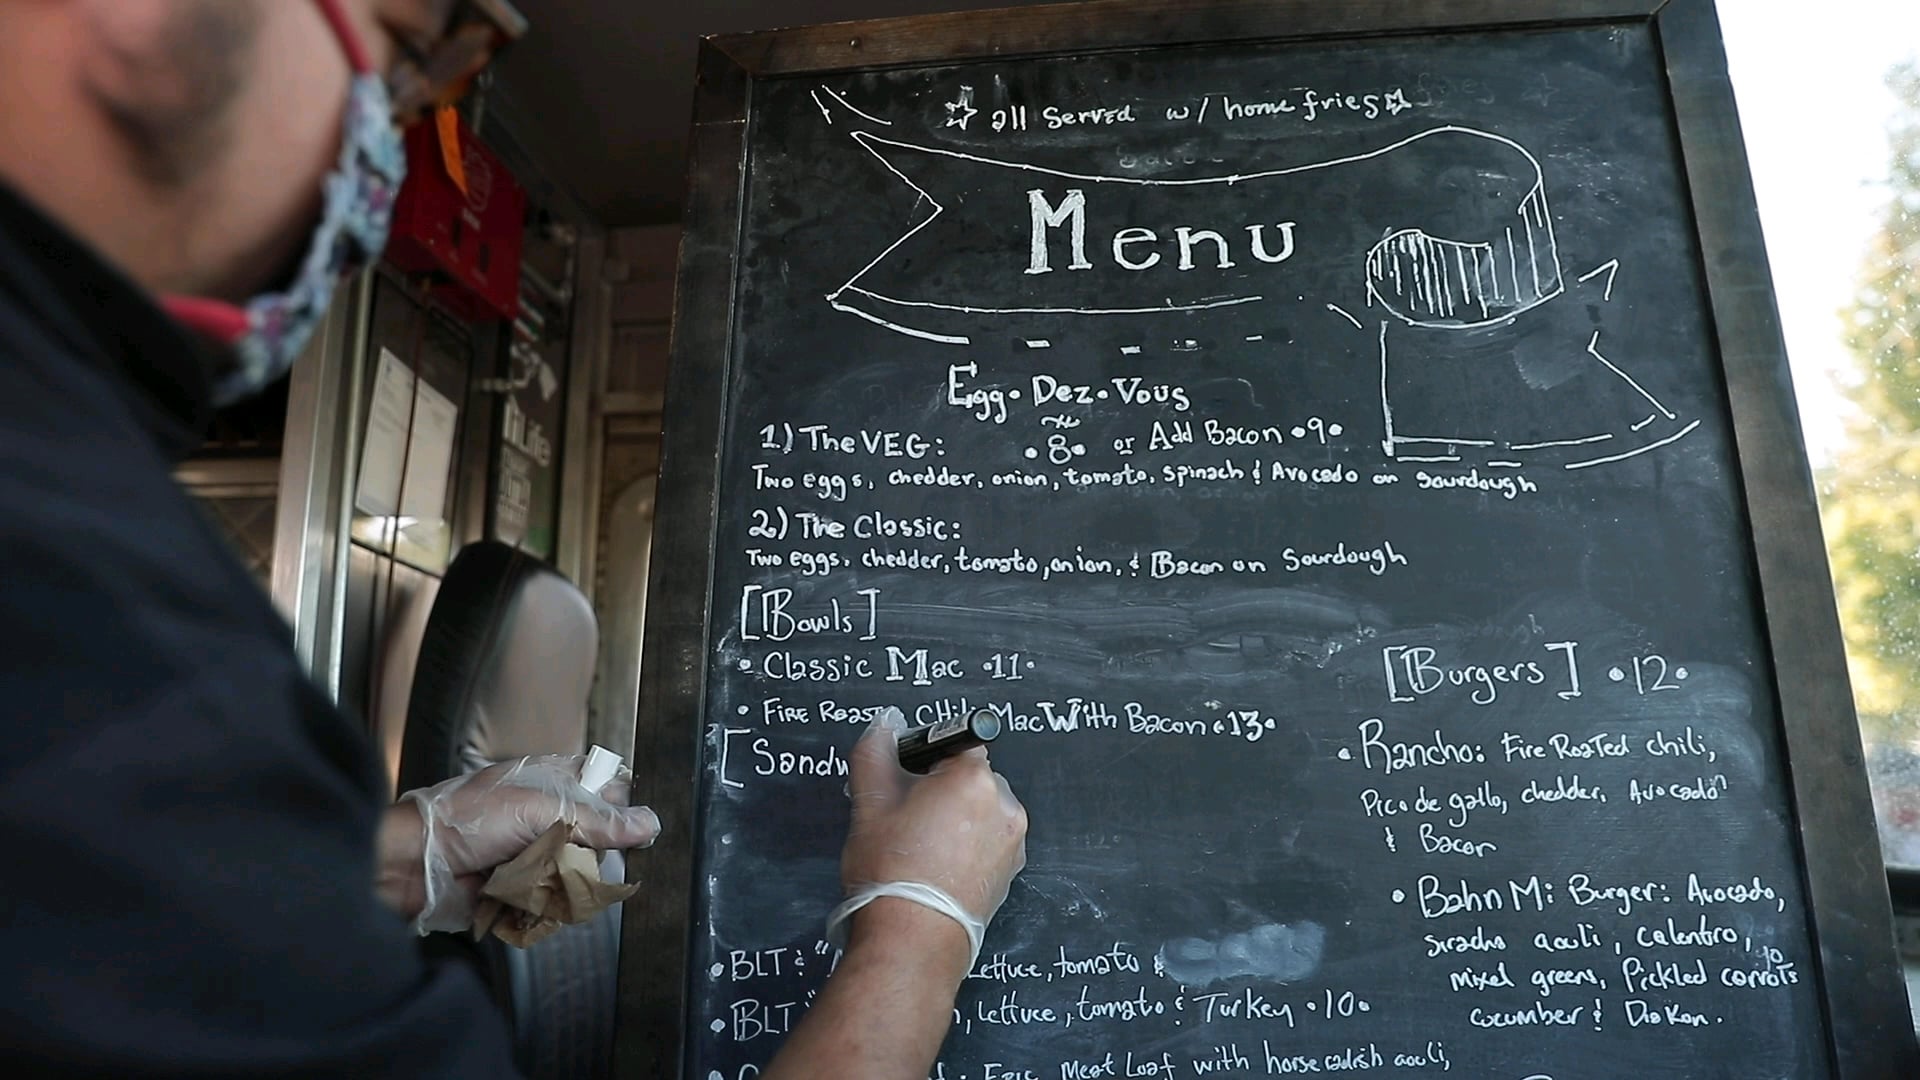 ☆ all Served w/ home fries ☆
Menu
Egg • Dez • Vous
1) The VEG: •8• or Add Bacon •9•
Two eggs, chedder, onion, tomato, spinach & Avocado on sourdough
2) The Classic:
Two eggs, chedder, tomato, onion, & Bacon on Sourdough
[Bowls]
• Classic Mac •11•
• FIRE Roast CHili Mac With Bacon •13•
[Sandw
• BLT & "A Lettuce, tomato &
• BLT " , Lettuce, tomato & Turkey •10•
Epic Meat Loaf with horseradish aouli,
[Burgers] •12•
• Rancho: Fire RoaTed chili,
Pico de gallo, chedder, Avocado
& Bacon
• Bahn Mi Burger: Avocado,
siracha aouli, calentro,
mixed greens, Pickled carrots
cucumber & Diakon.